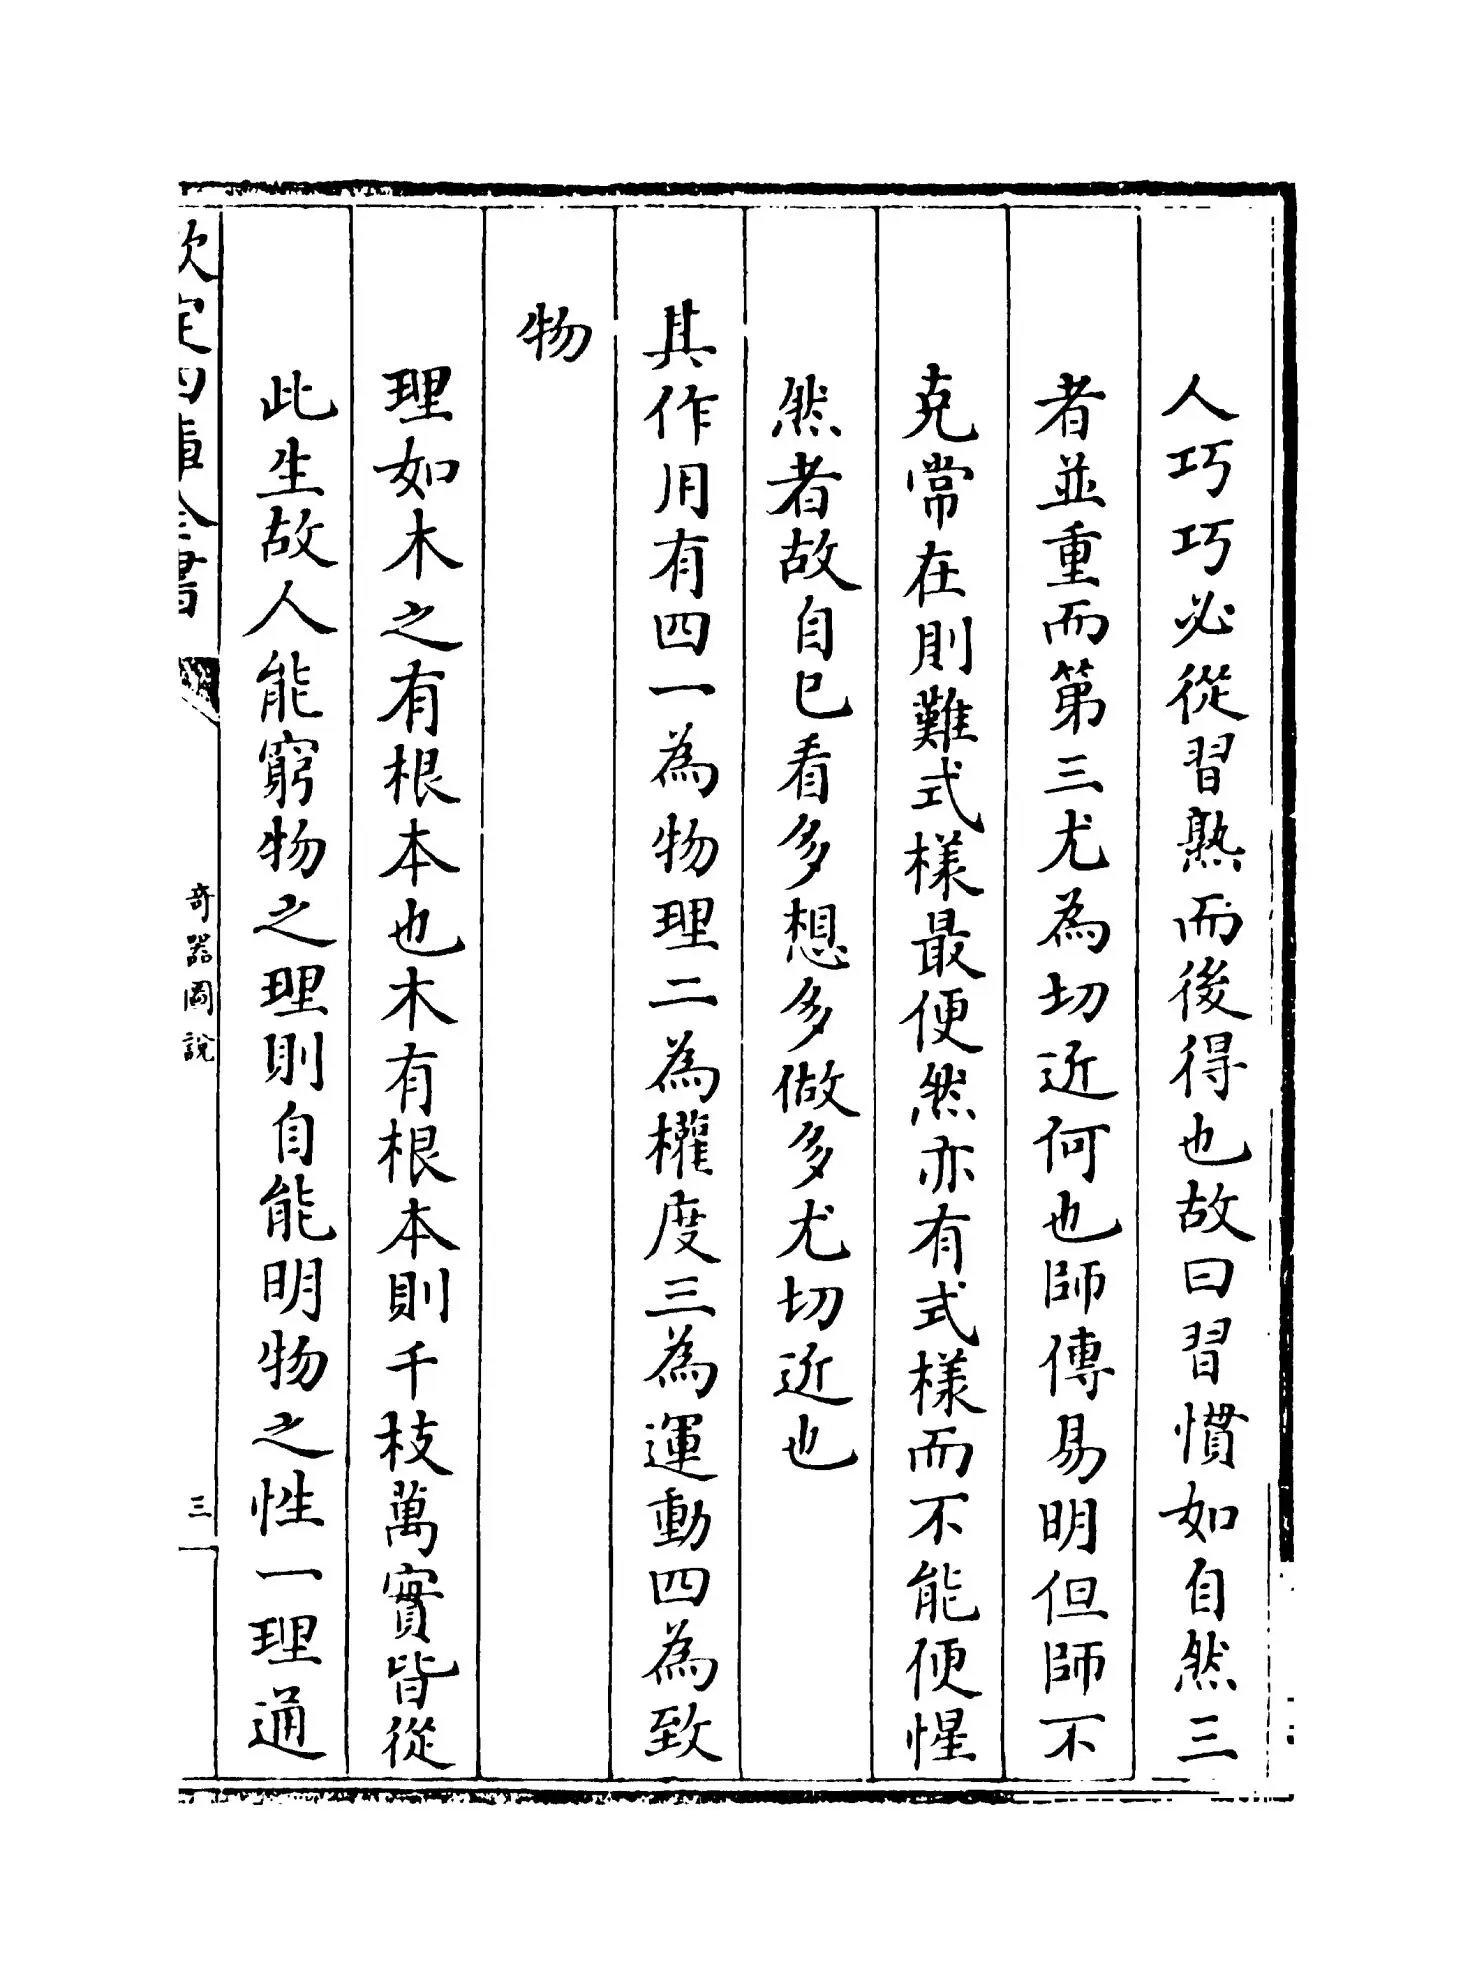 人巧巧必從習熟而後得也故曰習慣如自然三
者並重而第三尤為切近何也師傳易明但師不
克常在則難式樣最便然亦有式樣而不能便惺
然者故自已看多想多做多尤切近也
其作用有四一為物理二為權度三為運動四為致
物
理如木之有根本也木有根本則千枝萬實皆從
此生故人能窮物之理則自能明物之性一理通
欽定四庫全書
奇器圖說
三